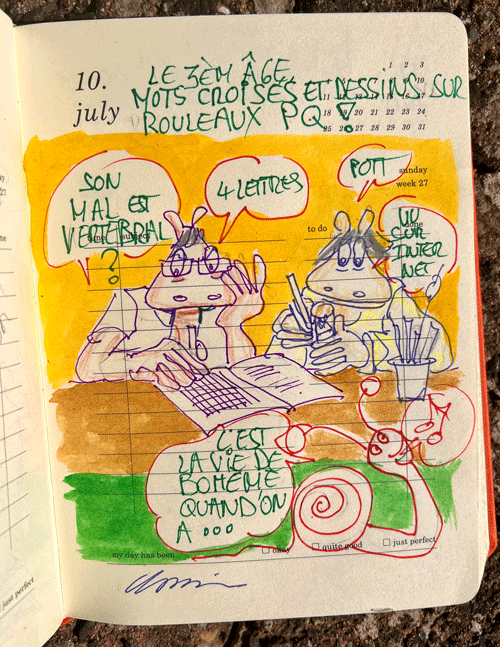 10.
july
LE 3ÈM ÂGE
MOTS CROISÉS ET DESSINS SUR
ROULEAUX PQ !
1 2 3
18 19 20 21 22 23 24
25 26 27 28 29 30 31
sunday
week 27
SON
MAL EST
VERTEBRAL
?
4 LETTRES
POTT
VU
SUR
INTER
NET
to do
done
C'EST
LA VIE DE
BOHÈME
QUAND'ON
A ...
my day has been
okay
quite good
just perfect
just perfect